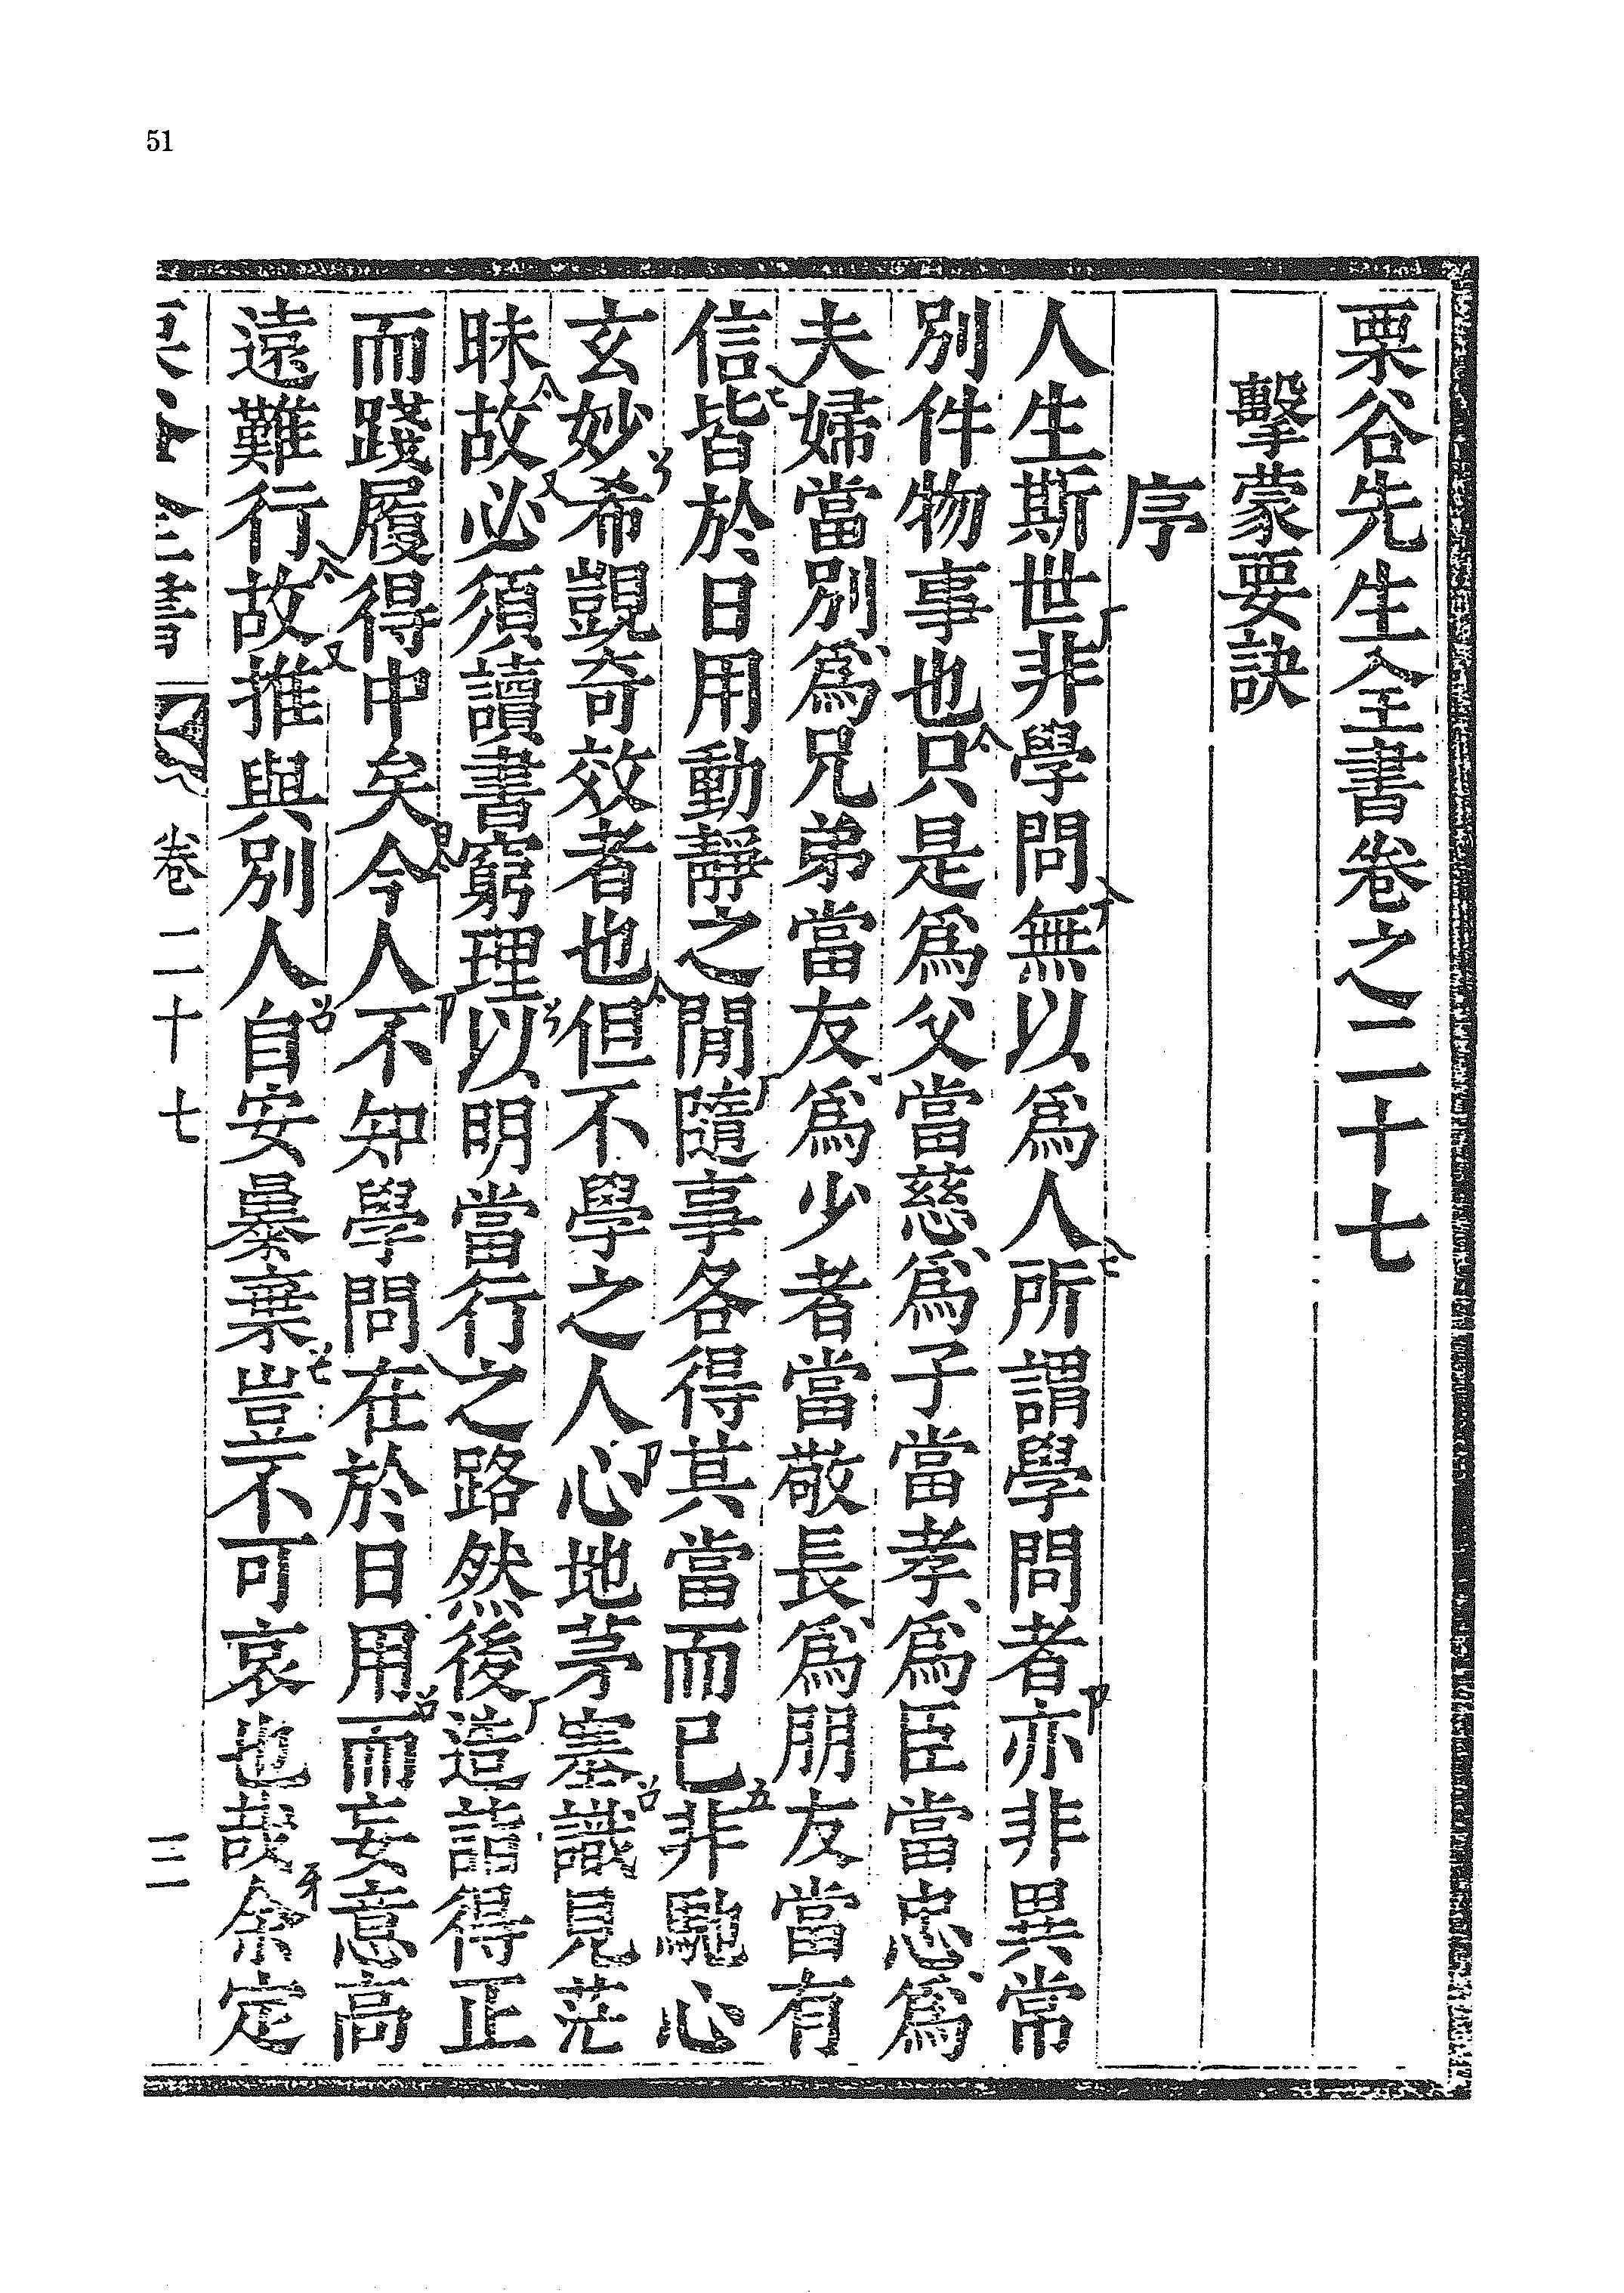 51
栗谷先生全書卷之二十七
擊蒙要訣
序
人生斯世非學問無以爲人所謂學問者亦非異常
別件物事也只是爲父當慈爲子當孝爲臣當忠爲
夫婦當別爲兄弟當友爲少者當敬長爲朋友當有
信皆於日用動靜之閒隨事各得其當而已非馳心
玄妙希覬奇效者也但不學之人心地茅塞識見茫
昧故必須讀書窮理以明當行之路然後造詣得正
而踐履得中矣今人不知學問在於日用而妄意高
遠難行故推與別人自安暴棄豈不可哀也哉余定
卷二十七
三